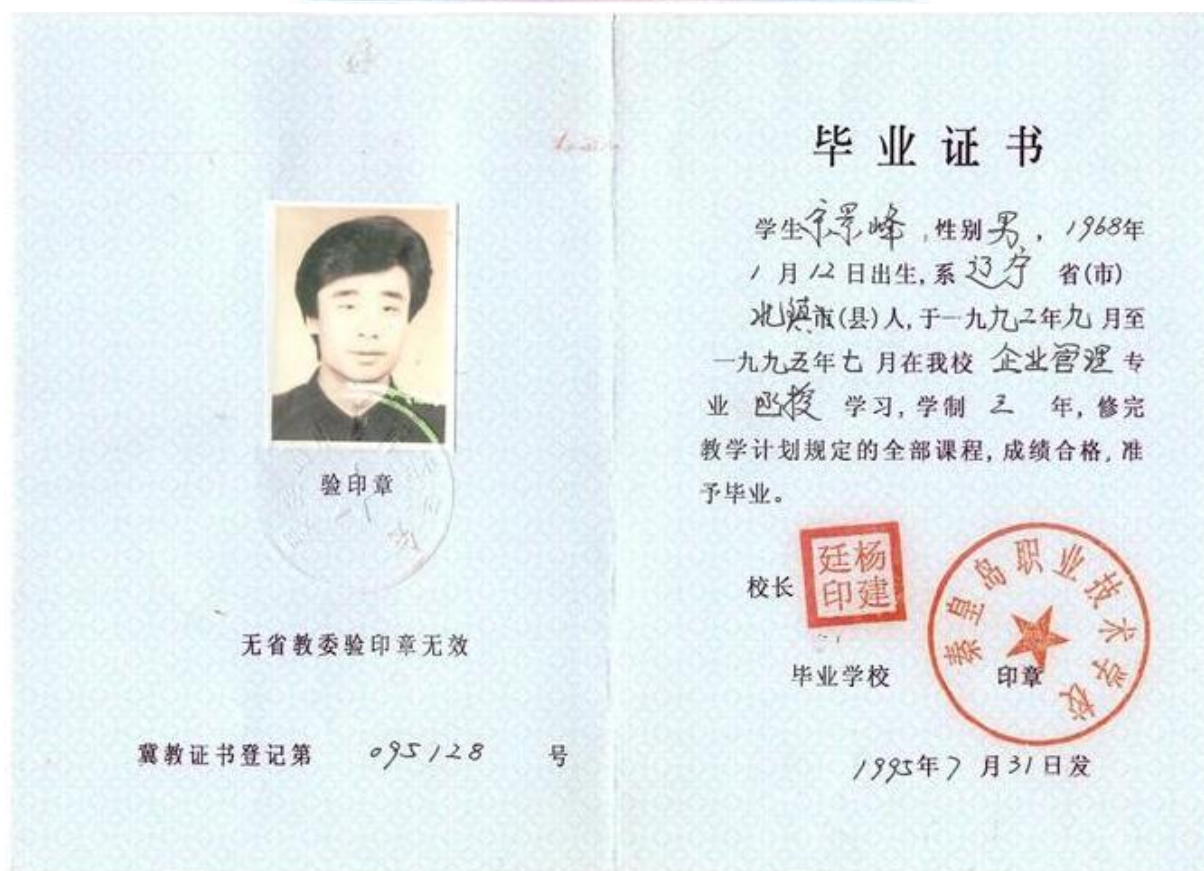 验印章
无省教委验印章无效
冀教证书登记第 095128 号
毕业证书
学生宗景峰,性别男,1968年
1月12日出生,系辽宁省(市)
北镇市(县)人,于一九九二年九月至
一九九五年七月在我校企业管理专
业函授学习,学制三年,修完
教学计划规定的全部课程,成绩合格,准
予毕业。
校长
杨建廷印
秦皇岛职业技术学校
毕业学校 印章
1995年7月31日发